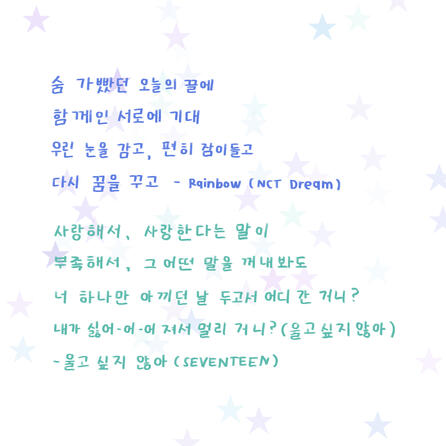 숨 가빴던 오늘의 끝에
함께인 서로에 기대
우린 눈을 감고, 편히 잠이들고
다시 꿈을 꾸고 - Rainbow (NCT Dream)
사랑해서, 사랑한다는 말이
부족해서, 그 어떤 말을 꺼내봐도
너 하나만 아끼던 날 두고서 어디 간 거니?
내가 싫어-어-어 져서 멀리 거니? (울고 싶지 않아)
-울고 싶지 않아 (SEVENTEEN)